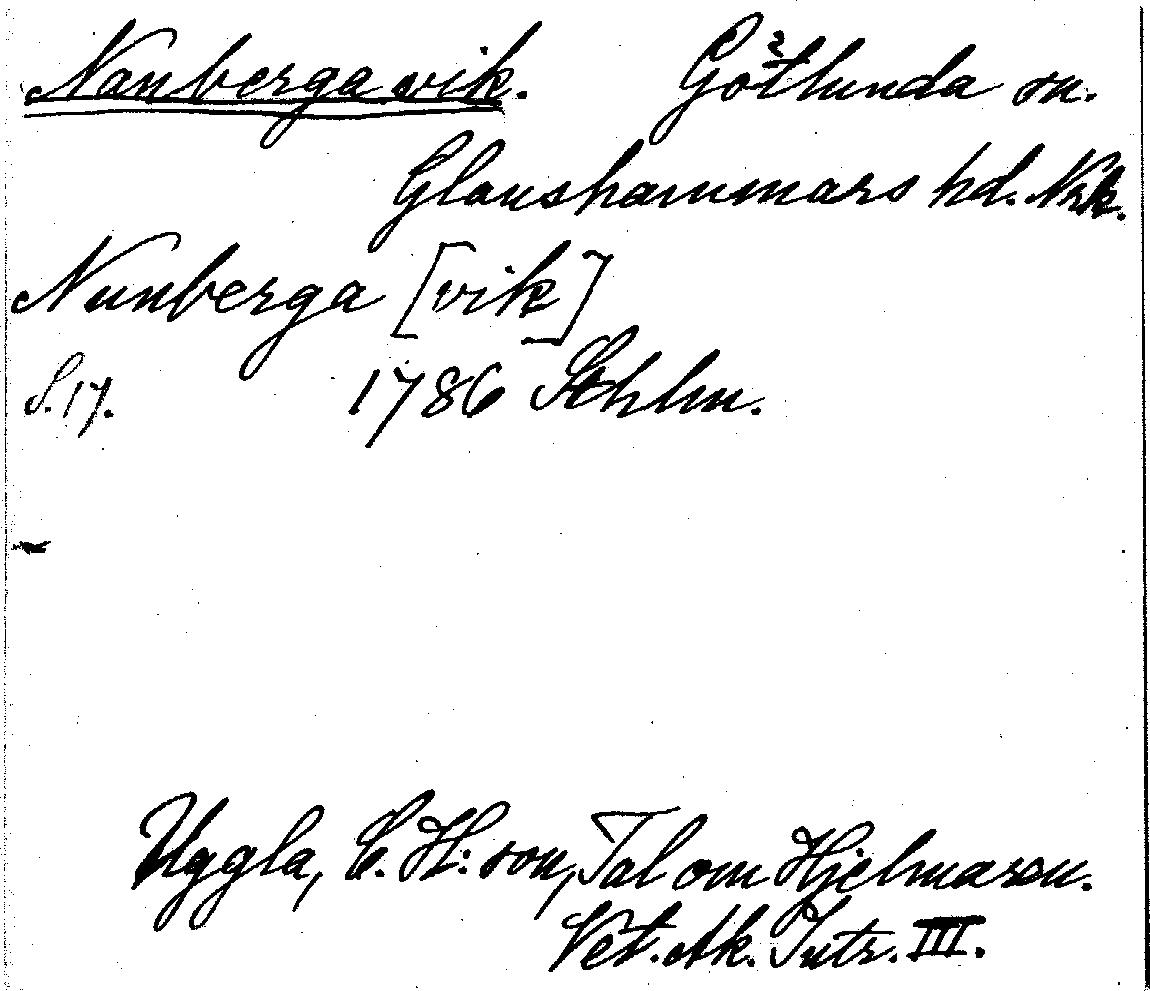 Nanberga vik. Götlunda sn.
Glanshammars hd. Nrk.
Nunberga [vik]
S. 17. 1786 Sthlm.
Uggla, C. H:son, Tal om Hjelmaren.
Vet. Ak. Intr. III.